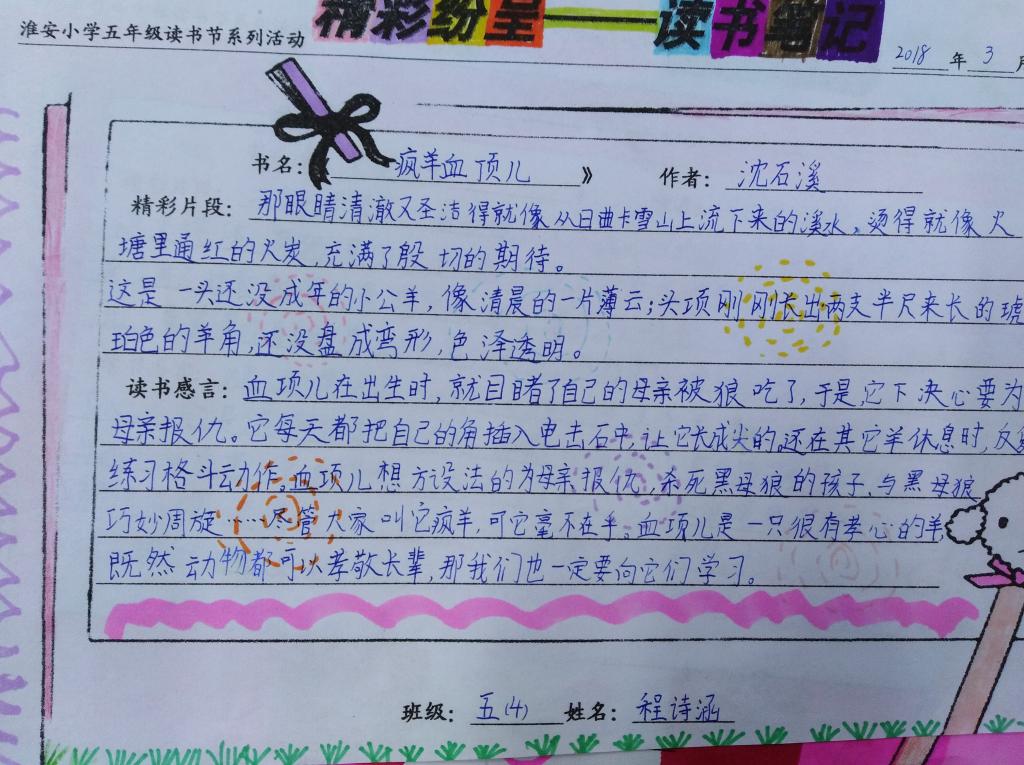 精彩纷呈——读书笔记
淮安小学五年级读书节系列活动
2018年3月
书名：疯羊血顶儿》 作者：沈石溪
精彩片段：那眼睛清澈又圣洁得就像从日曲卡雪山上流下来的溪水，烫得就像火
塘里通红的火炭，充满了殷切的期待。
这是一头还没成年的小公羊，像清晨的一片薄云；头项刚刚长出两支半尺来长的琥
珀色的羊角，还没盘成弯形，色泽透明。
读书感言：血项儿在出生时，就目睹了自己的母亲被狼吃了，于是，它下决心要为
母亲报仇。它每天都把自己的角插入电击石中，让它长成尖的，还在其它羊休息时，反复
练习格斗动作。血项儿想方设法的为母亲报仇，杀死黑母狼的孩子，与黑母狼
巧妙周旋……尽管大家叫它疯羊，可它毫不在乎。血项儿是一只很有孝心的羊，
既然动物都可以孝敬长辈，那我们也一定要向它们学习。
班级：五(4) 姓名：程诗涵